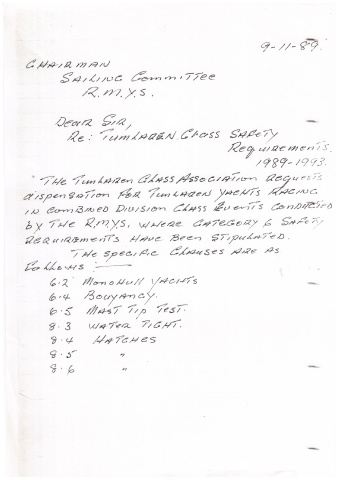 9-11-89.
CHAIRMAN
SAILING COMMITTEE
R.M.Y.S.
DEAR SIR,
RE: TUMLAREN CLASS SAFETY
REQUIREMENTS.
1989-1993.
"THE TUMLAREN CLASS ASSOCIATION REQUESTS
DISPENSATION FOR TUMLAREN YACHTS RACING
IN COMBINED DIVISION CLASS EVENTS CONDUCTED
BY THE R.M.Y.S. WHERE CATEGORY 6 SAFETY
REQUIREMENTS HAVE BEEN STIPULATED.
THE SPECIFIC CLAUSES ARE AS
FOLLOWS :—
6.2 MONOHULL YACHTS
6.4 BOUYANCY.
6.5 MAST TIP TEST.
8.3 WATER TIGHT.
8.4 HATCHES
8.5 "
8.6 "